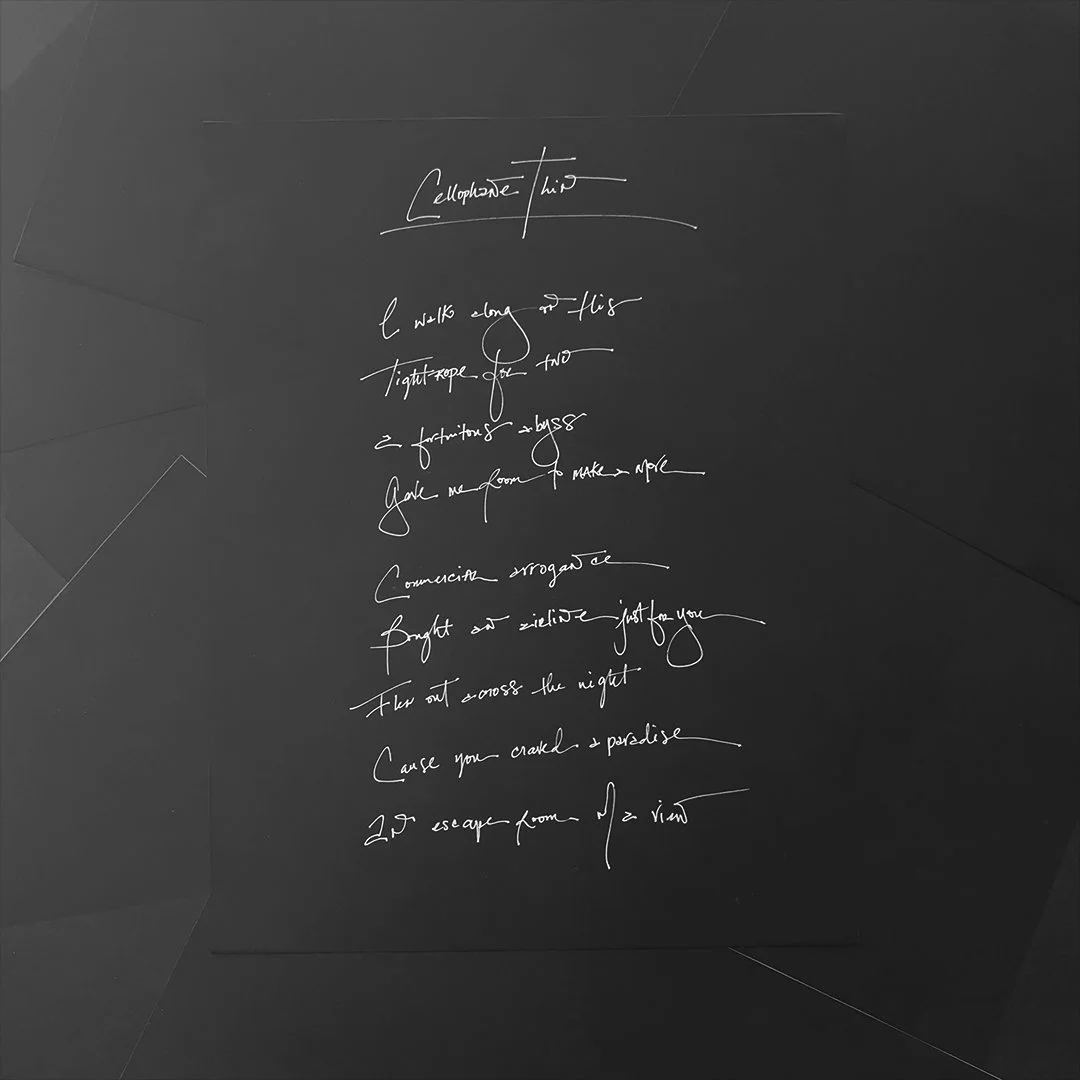 Cellophane Thin
I walk along on this
Tightrope for two
a fortuitous abyss
Gave me room to make a move
Commercial arrogance
Bought an airline just for you
Flew out across the night
Cause you craved a paradise
An escape room w/ a view